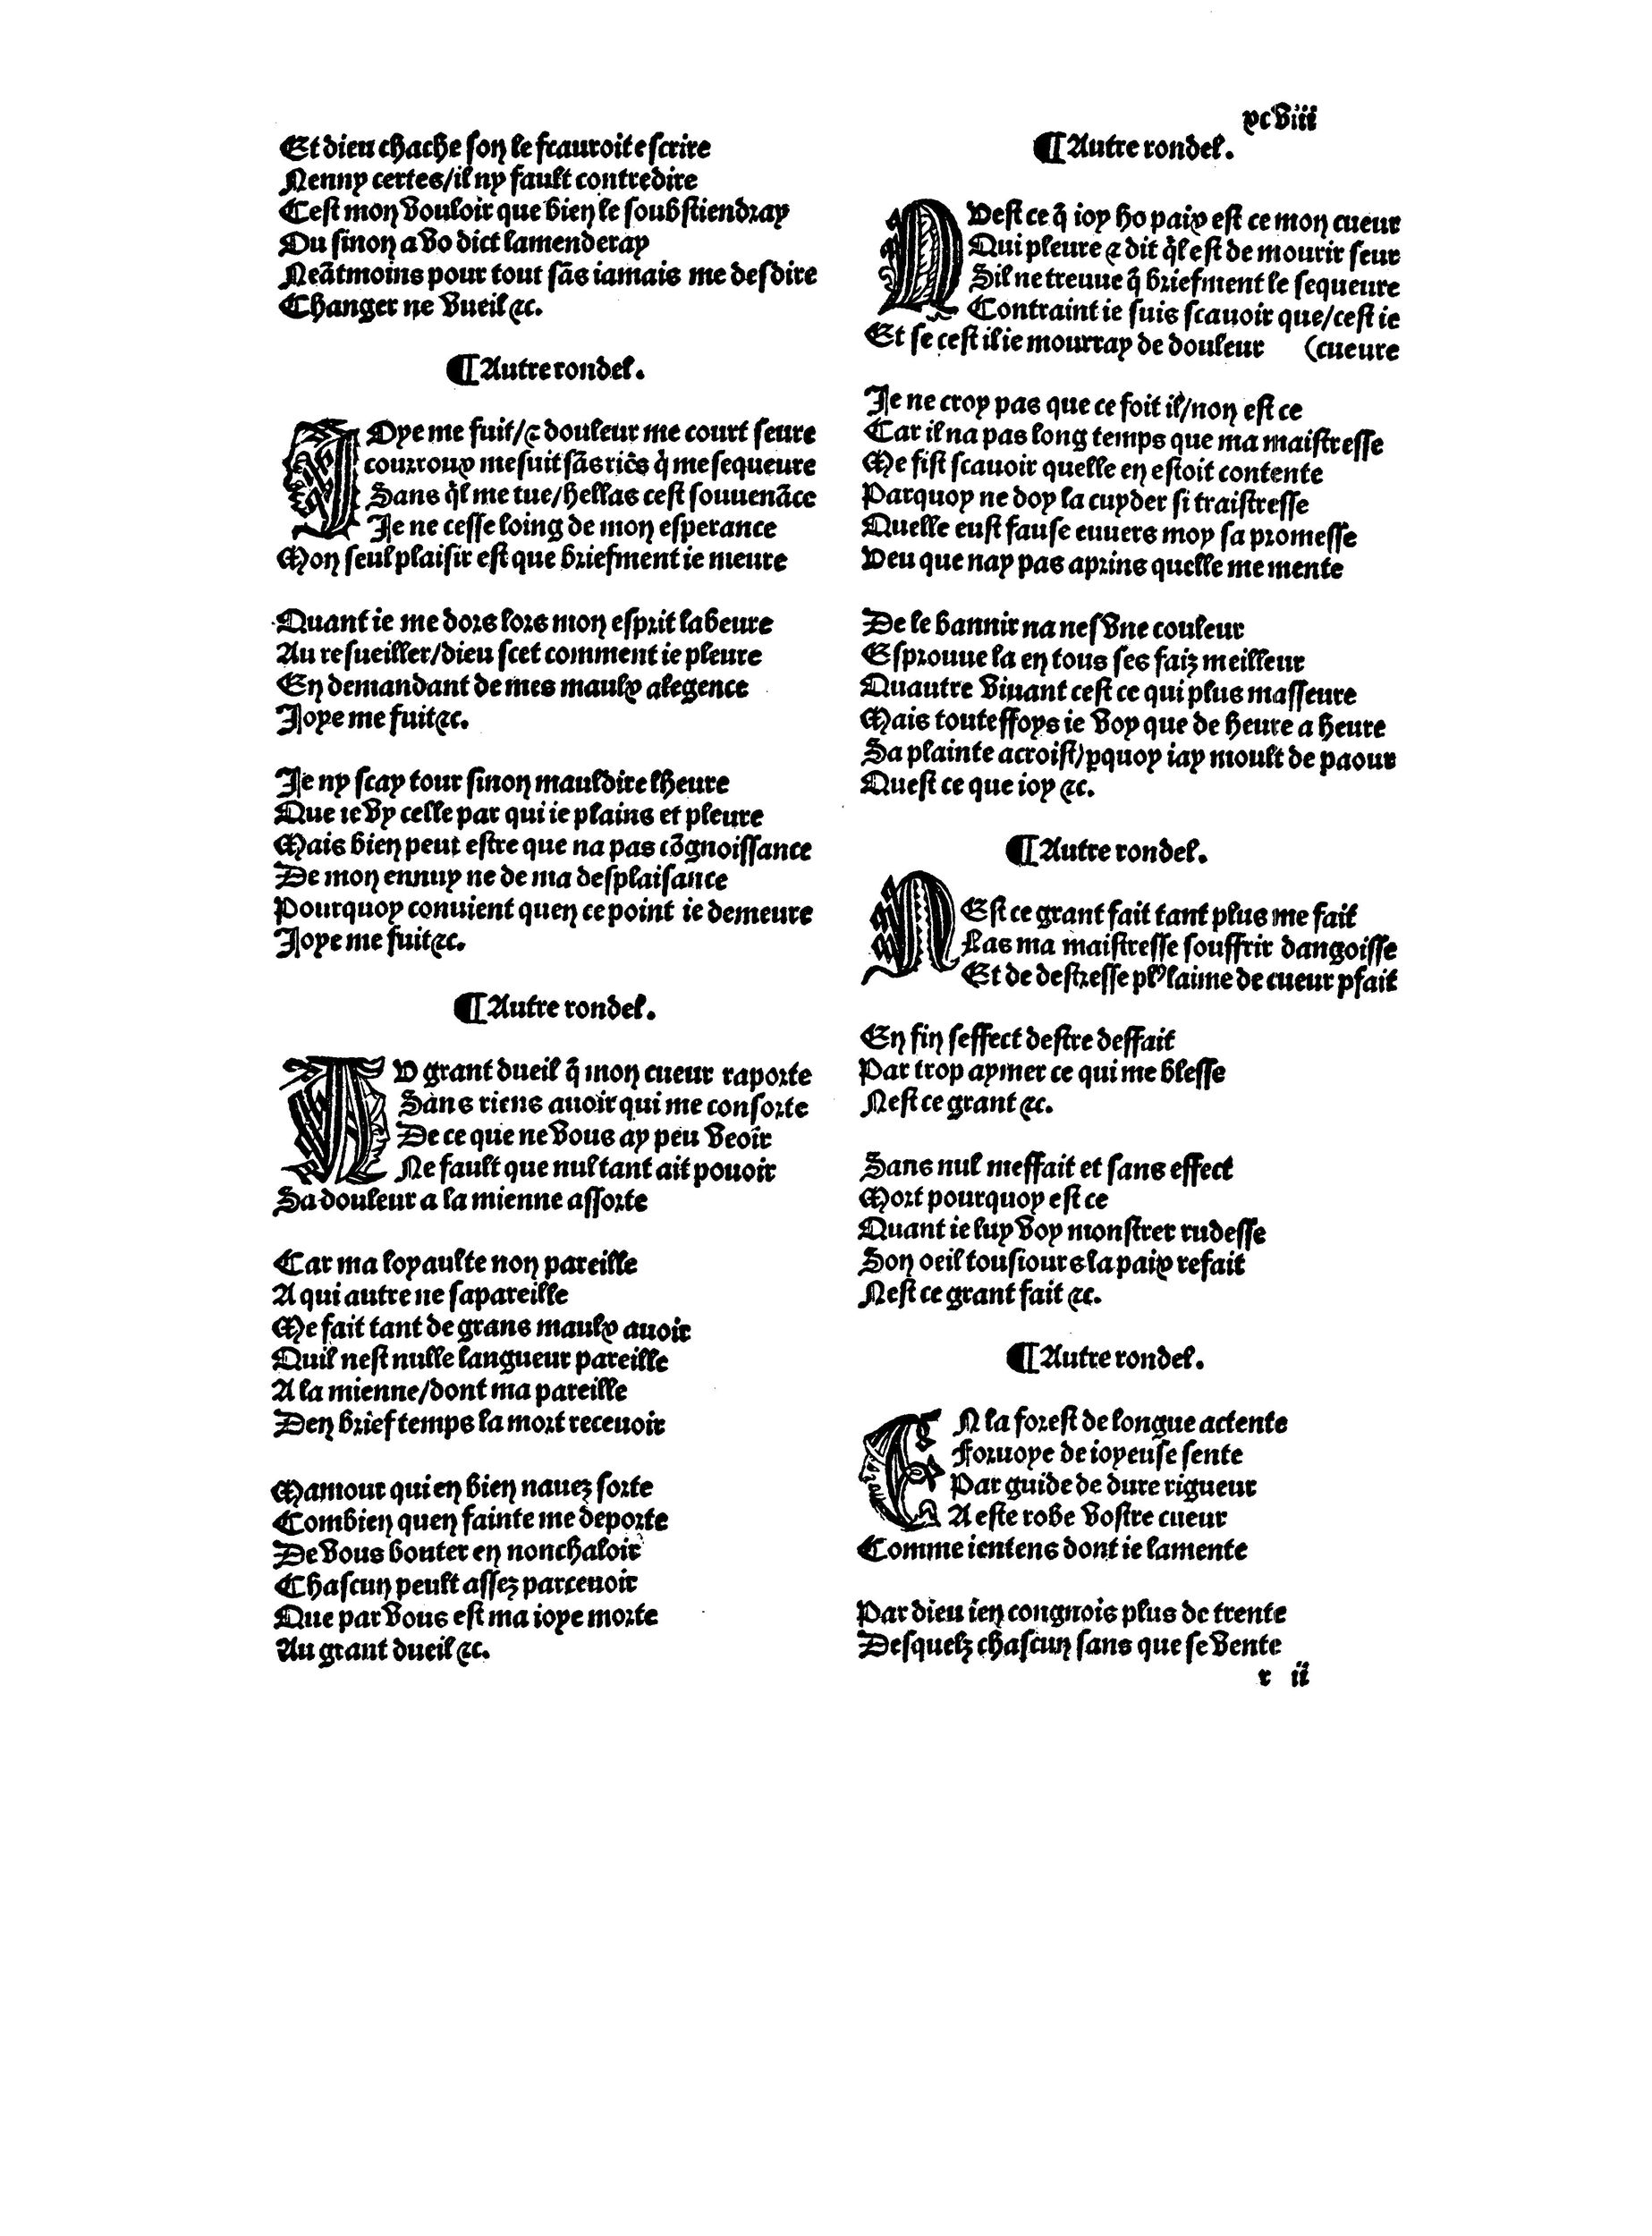 xcviii
Et dieu chache son le scauroit escrire
Nenny certes/il ny fault contredire
Cest mon vouloir que bien le soubstiendray
Ou sinon a vo dict lamenderay
Neãtmoins pour tout sãs iamais me desdire
Changer ne vueil ⁊c.
¶Autre rondel.
IOye me fuit/⁊ douleur me court seure
courroux me suit sãs riẽs q̃ me sequeure
Sans q̃l me tue/hellas cest souuenãce
Je ne cesse loing de mon esperance
Mon seul plaisir est que briefment ie meure
Quant ie me dors lors mon esprit labeure
Au resueiller/dieu scet comment ie pleure
En demandant de mes maulx alegence
Joye me fuit⁊c.
Je ny scay tour sinon mauldire lheure
Que ie vy celle par qui ie plains et pleure
Mais bien peut estre que na pas cõgnoissance
De mon ennuy ne de ma desplaisance
Pourquoy conuient quen ce point ie demeure
Joye me fuit⁊c.
¶Autre rondel.
AV grant dueil q̃ mon cueur raporte
Sans riens auoir qui me conforte
De ce que ne vous ay peu veoir
Ne fault que nul tant ait pouoir
Sa douleur a la mienne assorte
Car ma loyaulte non pareille
A qui autre ne sapareille
Me fait tant de grans maulx auoir
Quil nest nulle langueur pareille
A la mienne/dont ma pareille
Den brief temps la mort receuoir
Mamour qui en bien nauez sorte
Combien quen fainte me deporte
De vous bouter en nonchaloir
Chascun peult assez parceuoir
Que par vous est ma ioye morte
Au grant dueil ⁊c.
¶Autre rondel.
QVest ce q̃ ioy ho paix est ce mon cueur
Qui pleure ⁊ dit q̃l est de mourir seur
Sil ne treuue q̃ briefment le sequeure
Contraint ie suis scauoir que/cest ie
Et se cest il ie mourray de douleur (cueure
Je ne croy pas que ce soit il/non est ce
Car il na pas long temps que ma maistresse
Me fist scauoir quelle en estoit contente
Parquoy ne doy la cuyder si traistresse
Quelle eust fause enuers moy sa promesse
Veu que nay pas aprins quelle me mente
De le bannir na nesvne couleur
Esprouue la en tous ses faiz meilleur
Quautre viuant cest ce qui plus masseure
Mais touteffoys ie voy que de heure a heure
Sa plainte acroist/ꝑquoy iay moult de paour
Quest ce que ioy ⁊c.
¶Autre rondel.
NEst ce grant fait tant plus me fait
Las ma maistresse souffrir dangoisse
Et de destresse plꝰ laime de cueur ꝑfait
En fin seffect destre deffait
Par trop aymer ce qui me blesse
Nest ce grant ⁊c.
Sans nul meffait et sans effect
Mort pourquoy est ce
Quant ie luy voy monstrer rudesse
Son oeil tousiours la paix refait
Nest ce grant fait ⁊c.
¶Autre rondel.
EN la forest de longue actente
Foruoye de ioyeuse sente
Par guide de dure rigueur
A este robe vostre cueur
Comme ientens dont ie lamente
Par dieu ien congnois plus de trente
Desquelz chascun sans que se vente
r ii